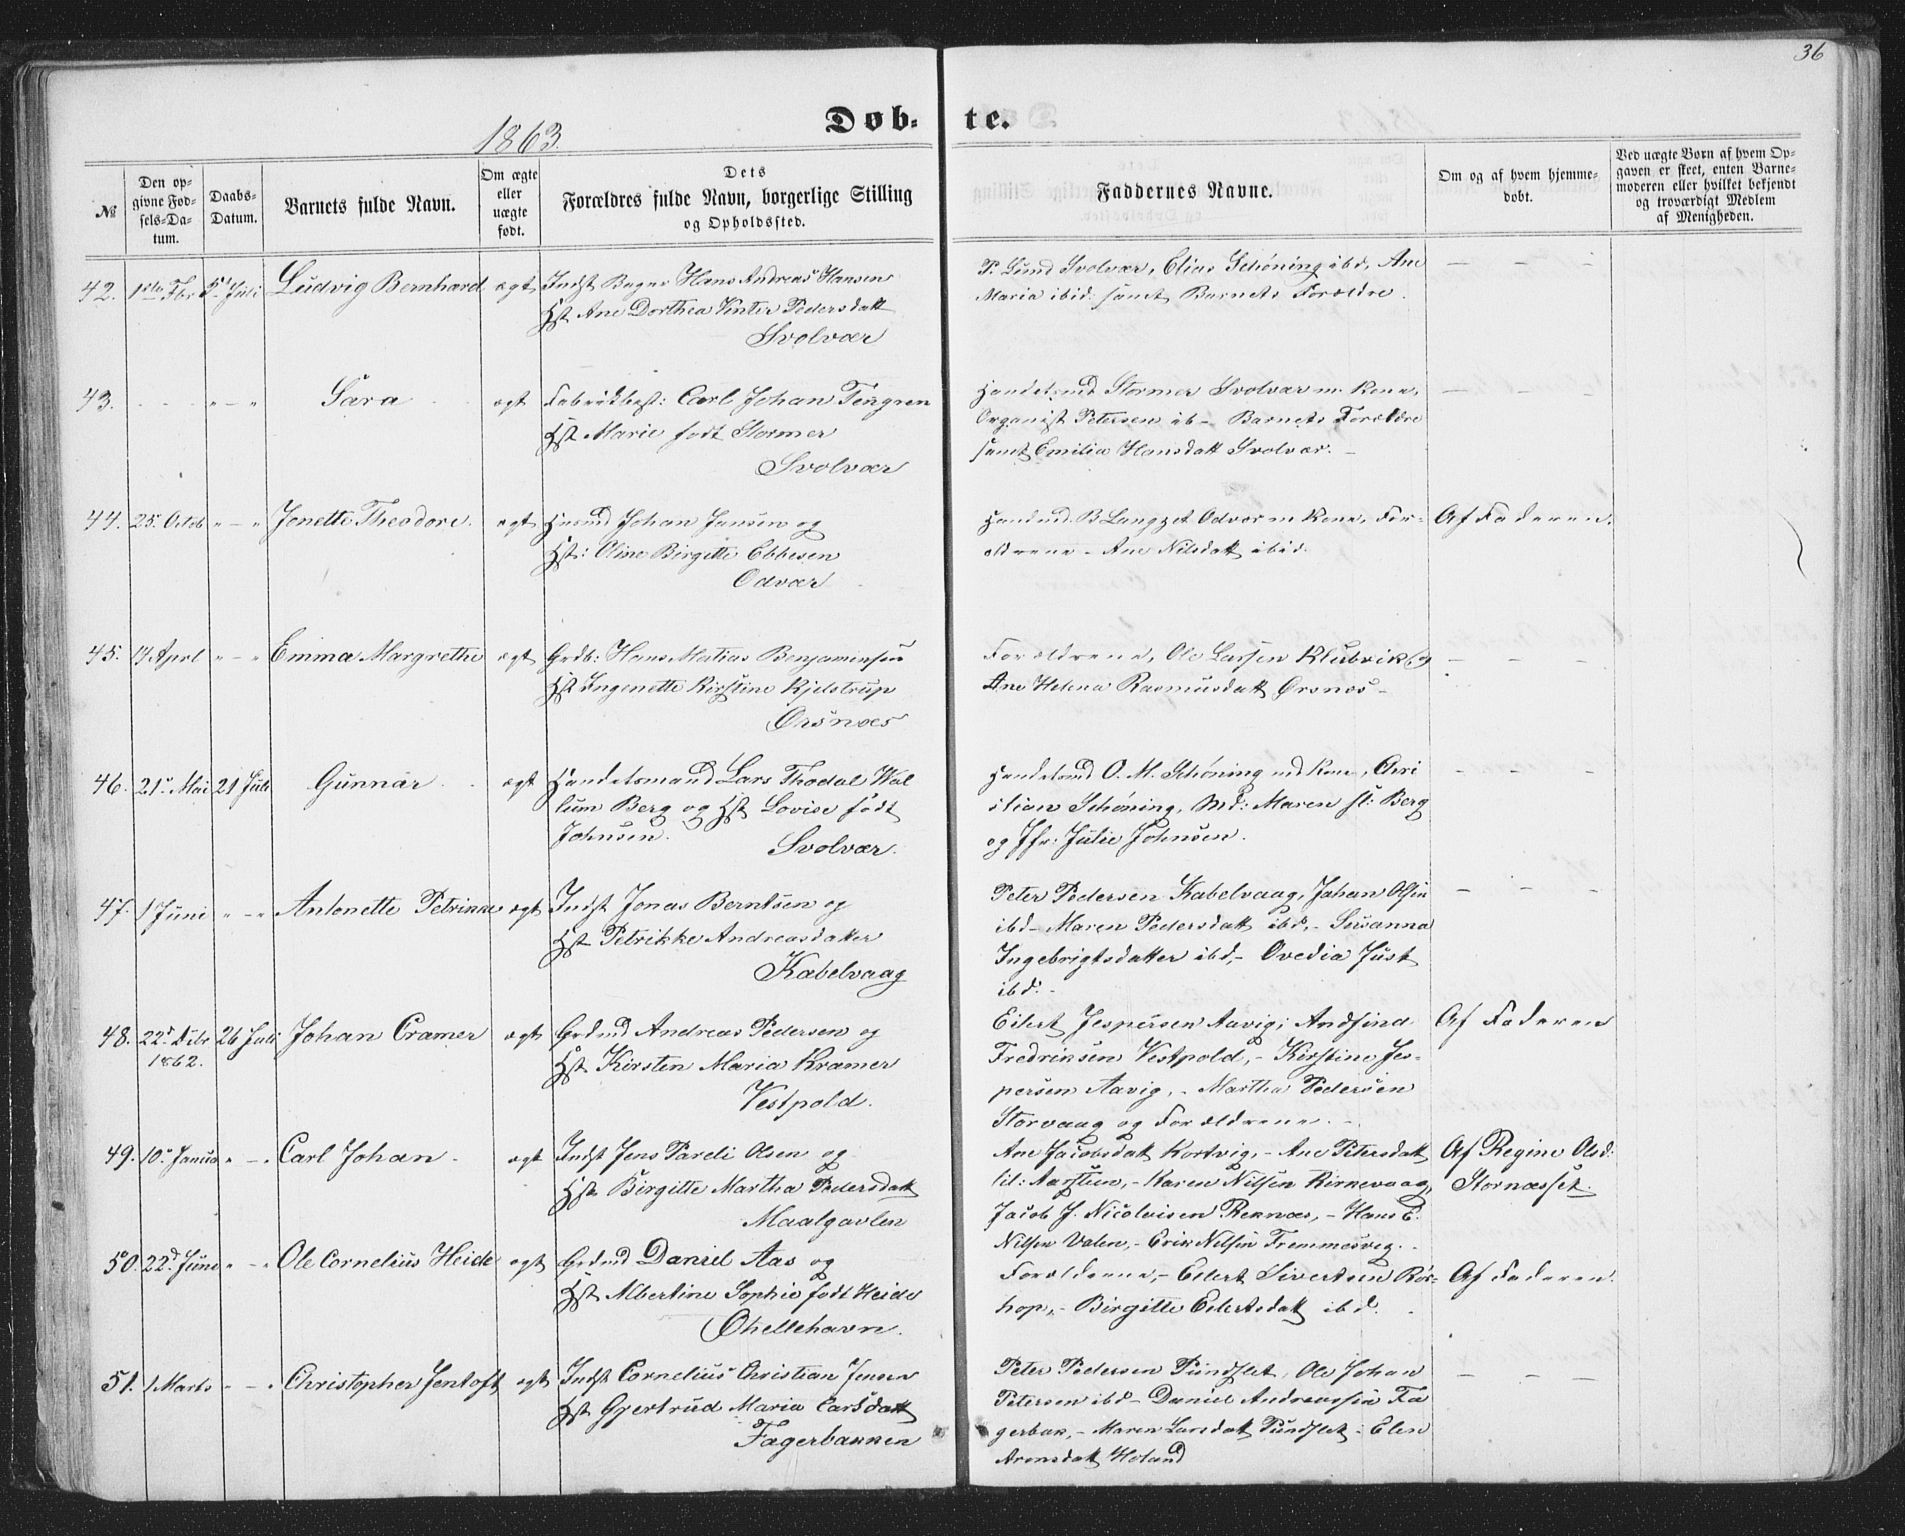 36
1863.
Døb- te.
№
Den op-
givne Fød-
sels-Da-
tum.
Daabs-
Datum.
Barnets fulde Navn.
Om ægte
eller
uægte
født.
Dets
Forældres fulde Navn, borgerlige Stilling
og Opholdssted.
Faddernes Navne.
Om og af hvem hjemme-
døbt.
Ved uægte Børn af hvem Op-
gaven er skeet, enten Barne-
moderen eller hvilket bekjendt
og troværdigt Medlem
af Menigheden.
42. 1ste Fbr 5te Juli Ludvig Bernhard ægt Indst Bager Hans Andreas Hansen
Hst Ane Dorthea Vinter Pedersdatt
Svolvær
P. Lund Svolvær, Elias Schøning ibd, Ane
Maria ibid: samt Barnets Forældre.
— — —
43. - - - „ — „ Sara ægt Fabrikbest: Carl Johan Tengren
Hst Marie født Stormer
Svolvær
Handelsmd Stormer Svolvær m. Kone,
Organist Petersen ib - Barnets Forældre
samt Emilia Hansdatt Svolvær. -
— — —
44. 25. Octob „ — „ Jonette Theodore. ægt Husmd Johan Jansen og
Hst: Oline Birgitte Ebbesen
Odvær
Handmd. B Langzet Odvær m Kone, For-
ældrene - Ane Nilsdatt ibid.
Af Faderen.
45. 17 Aprl „ — „ Emma Margrethe ægt Grdb: Hans Matias Benjaminsen
Hst Ingenette Kirstine Kjelstrup
Ørsnæs
Forældrene, Ole Larsen Klubvik og
Ane Helena Rasmusdatt Ørsnæs -
— — —
46. 21. Mai 21 Juli Gunnar ægt Handelsmand Lars Thodal Wal
lum Berg og Hst Lovise født
Johnsen.
Svolvær.
Handelsmd O. M. Schøning md Kone, Chri
stian Schøning, Md: Maren sl: Berg
og Jfr: Julie Johnsen.
— — —
47. 1 Juni „ — „ Antonette Petrikke ægt Indst Jonas Berntsen og
Hst Petrikke Andreasdatter
Kabelvaag
Peter Pedersen Kabelvaag, Johan Olsen
ibd - Maren Pedersdatt ibd, - Susanna
Ingebrigtsdatter ibd, - Ovedia Just
ibd. -
— — —
48. 22d Debr 26 Juli Johan Cramer ægt Grdmd Andreas Pedersen og
1862.
Hst Kirsten Maria Kramer
Vestpold.
Eilert Jespersen Aavig, Andsina
Fredriksen Vestpold, - Kirstine Jes-
persen Aavig, - Martha Pedersen
Storvaag og Forældrene. -
Af Faderen
49. 10. Janua „ — „ Carl Johan ægt Indst Jens Pareli Olsen og
Hst Birgitte Martha Pedersdatt
Maalgavlen
Ane Jacobsdatt Kortvig, - Ane Petersdatt
lil: Aarsteen, - Karen Nilsen Kirnevaag,
Jacob J. Nicolaisen Reknæs, - Hans E.
Nilsen Valen, - Erik Nilsen Fremmesvig. -
Af Regine Olsd:
Stornæsset.
50. 22d Juni „ — „ Ole Cornelius Heide ægt Grdmd Daniel Aas og
Hst Albertine Sophie født Heide
Ohellehavn.
Forældrene, - Eilert Sivertsen Rør-
hop, - Birgitte Eilertsdatt ibd.
Af Faderen.
51. 1 Marts „ — „ Christopher Jentoft ægt Indst Cornelius Christian Jensen
Hst Gjertrud Maria Larsdatt
Fagerbakken
Peter Pedersen Pundslet, Ole Johan
Petersen ibd - Daniel Andreassen Fa
gerbak, - Maren Larsdatt Pundslet - Elen
Aronsdatt Holand
— — —